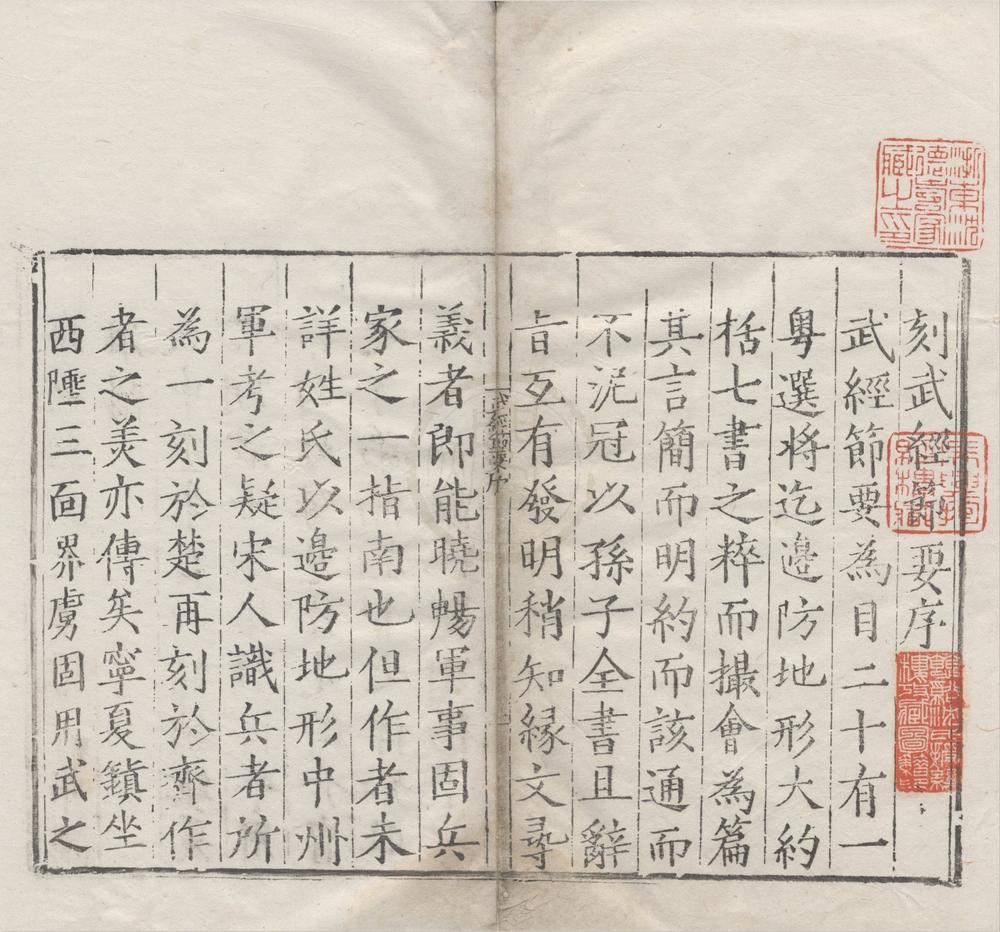 刻武經節要序
武經節要為目二十有一
粤選將迄邊防地形大約
括七書之粹而撮會為篇
其言簡而明約而該通而
不泥冠以孫子全書且辭
旨互有發明稍知緣文尋
武經節要序
義者即能曉暢軍事固兵
家之一指南也但作者未
詳姓氏以邊防地形中州
軍考之疑宋人識兵者所
為一刻於楚再刻於齊作
者之美亦傳矣寧夏鎮坐
西陲三面界虜固用武之
浙東沈
德壽家
藏之印